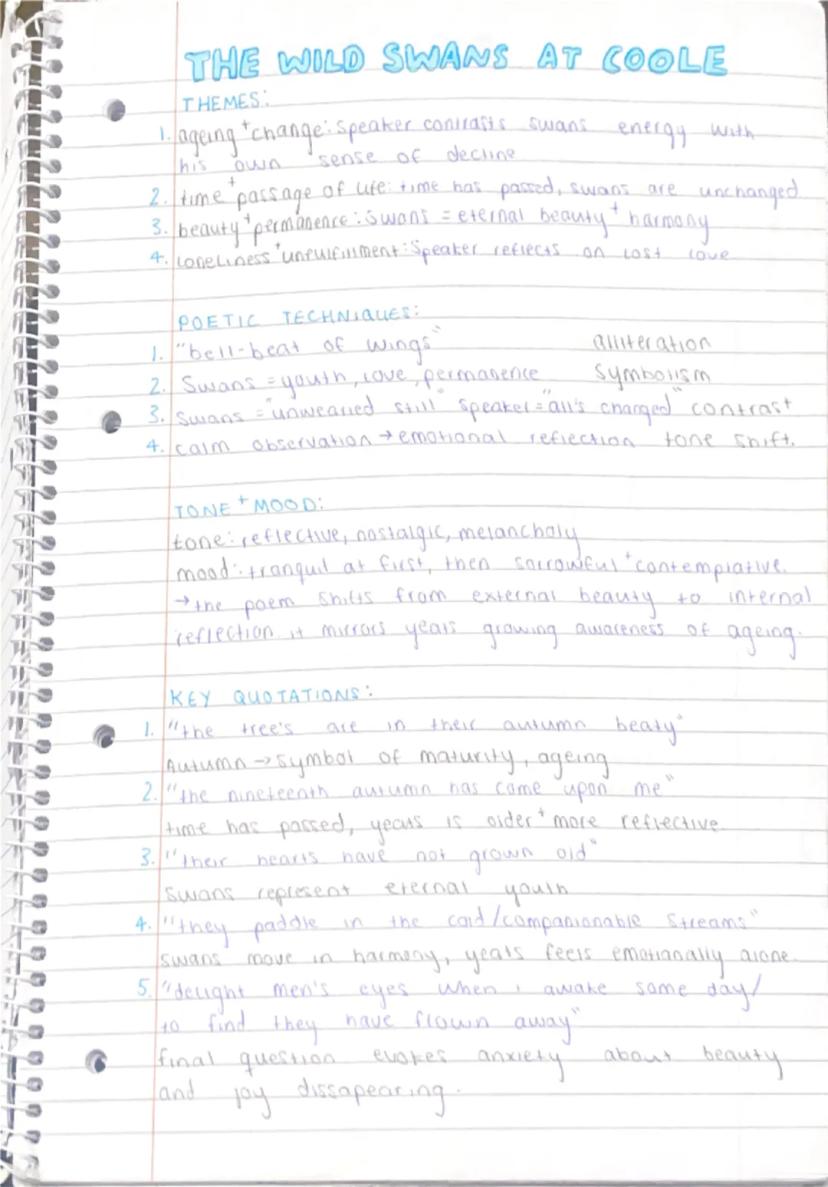 THE WILD SWANS AT COOLE
THEMES:
1. ageing + change: speaker contrasts swans energy with
his own sense of decline
2. time + passage of life: time has passed, swans are unchanged
3. beauty + permanence: swans = eternal beauty + harmony
4. loneliness + unfulfillment: speaker reflects on lost love
POETIC TECHNIQUES:
1. "bell-beat of wings" alliteration
2. Swans = youth, love, permanence symbolism
3. Swans = "unwearied still" speaker = "all's changed" contrast
4. calm observation → emotional reflection tone shift.
TONE + MOOD:
tone: reflective, nostalgic, melancholy
mood: tranquil at first, then sorrowful + contemplative.
→ the poem shifts from external beauty to internal
reflection it mirrors years growing awareness of ageing.
KEY QUOTATIONS:
1. "the tree's are in their autumn beaty"
Autumn → symbol of maturity, ageing
2. "the nineteenth autumn has come upon me"
time has passed, yeats is older + more reflective
3. "their hearts have not grown old"
swans represent eternal youth
4. "they paddle in the cold/companionable streams"
swans move in harmony, yeats feels emotionally alone.
5. "delight men's eyes when i awake some day/
to find they have flown away"
final question evokes anxiety about beauty
and joy dissapearing.